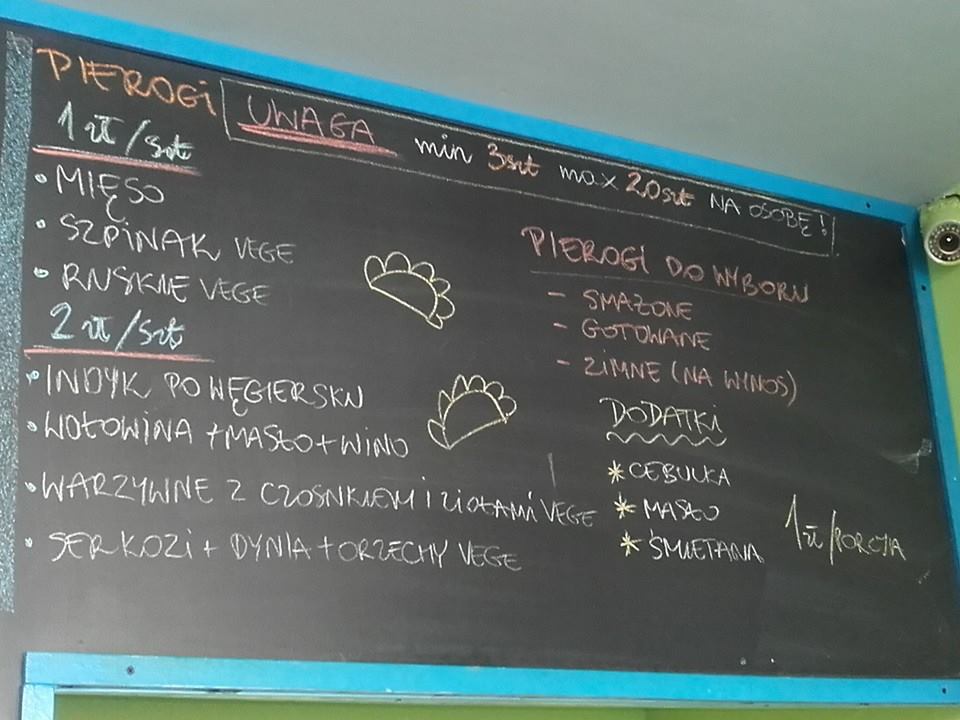 PIEROGI
UWAGA min 3szt max 20szt NA OSOBĘ!
1 zł/szt
• MIĘSO
• SZPINAK VEGE
• RUSKIE VEGE
2 zł/szt
• INDYK PO WĘGIERSKU
• WOŁOWINA + MASŁO + WINO
• WARZYWNE Z CZOSNKIEM I ZIOŁAMI VEGE
• SER KOZI + DYNIA + ORZECHY VEGE
PIEROGI DO WYBORU
- SMAŻONE
- GOTOWANE
- ZIMNE (NA WYNOS)
DODATKI
* CEBULKA
* MASŁO
* ŚMIETANA
1 zł/PORCJA